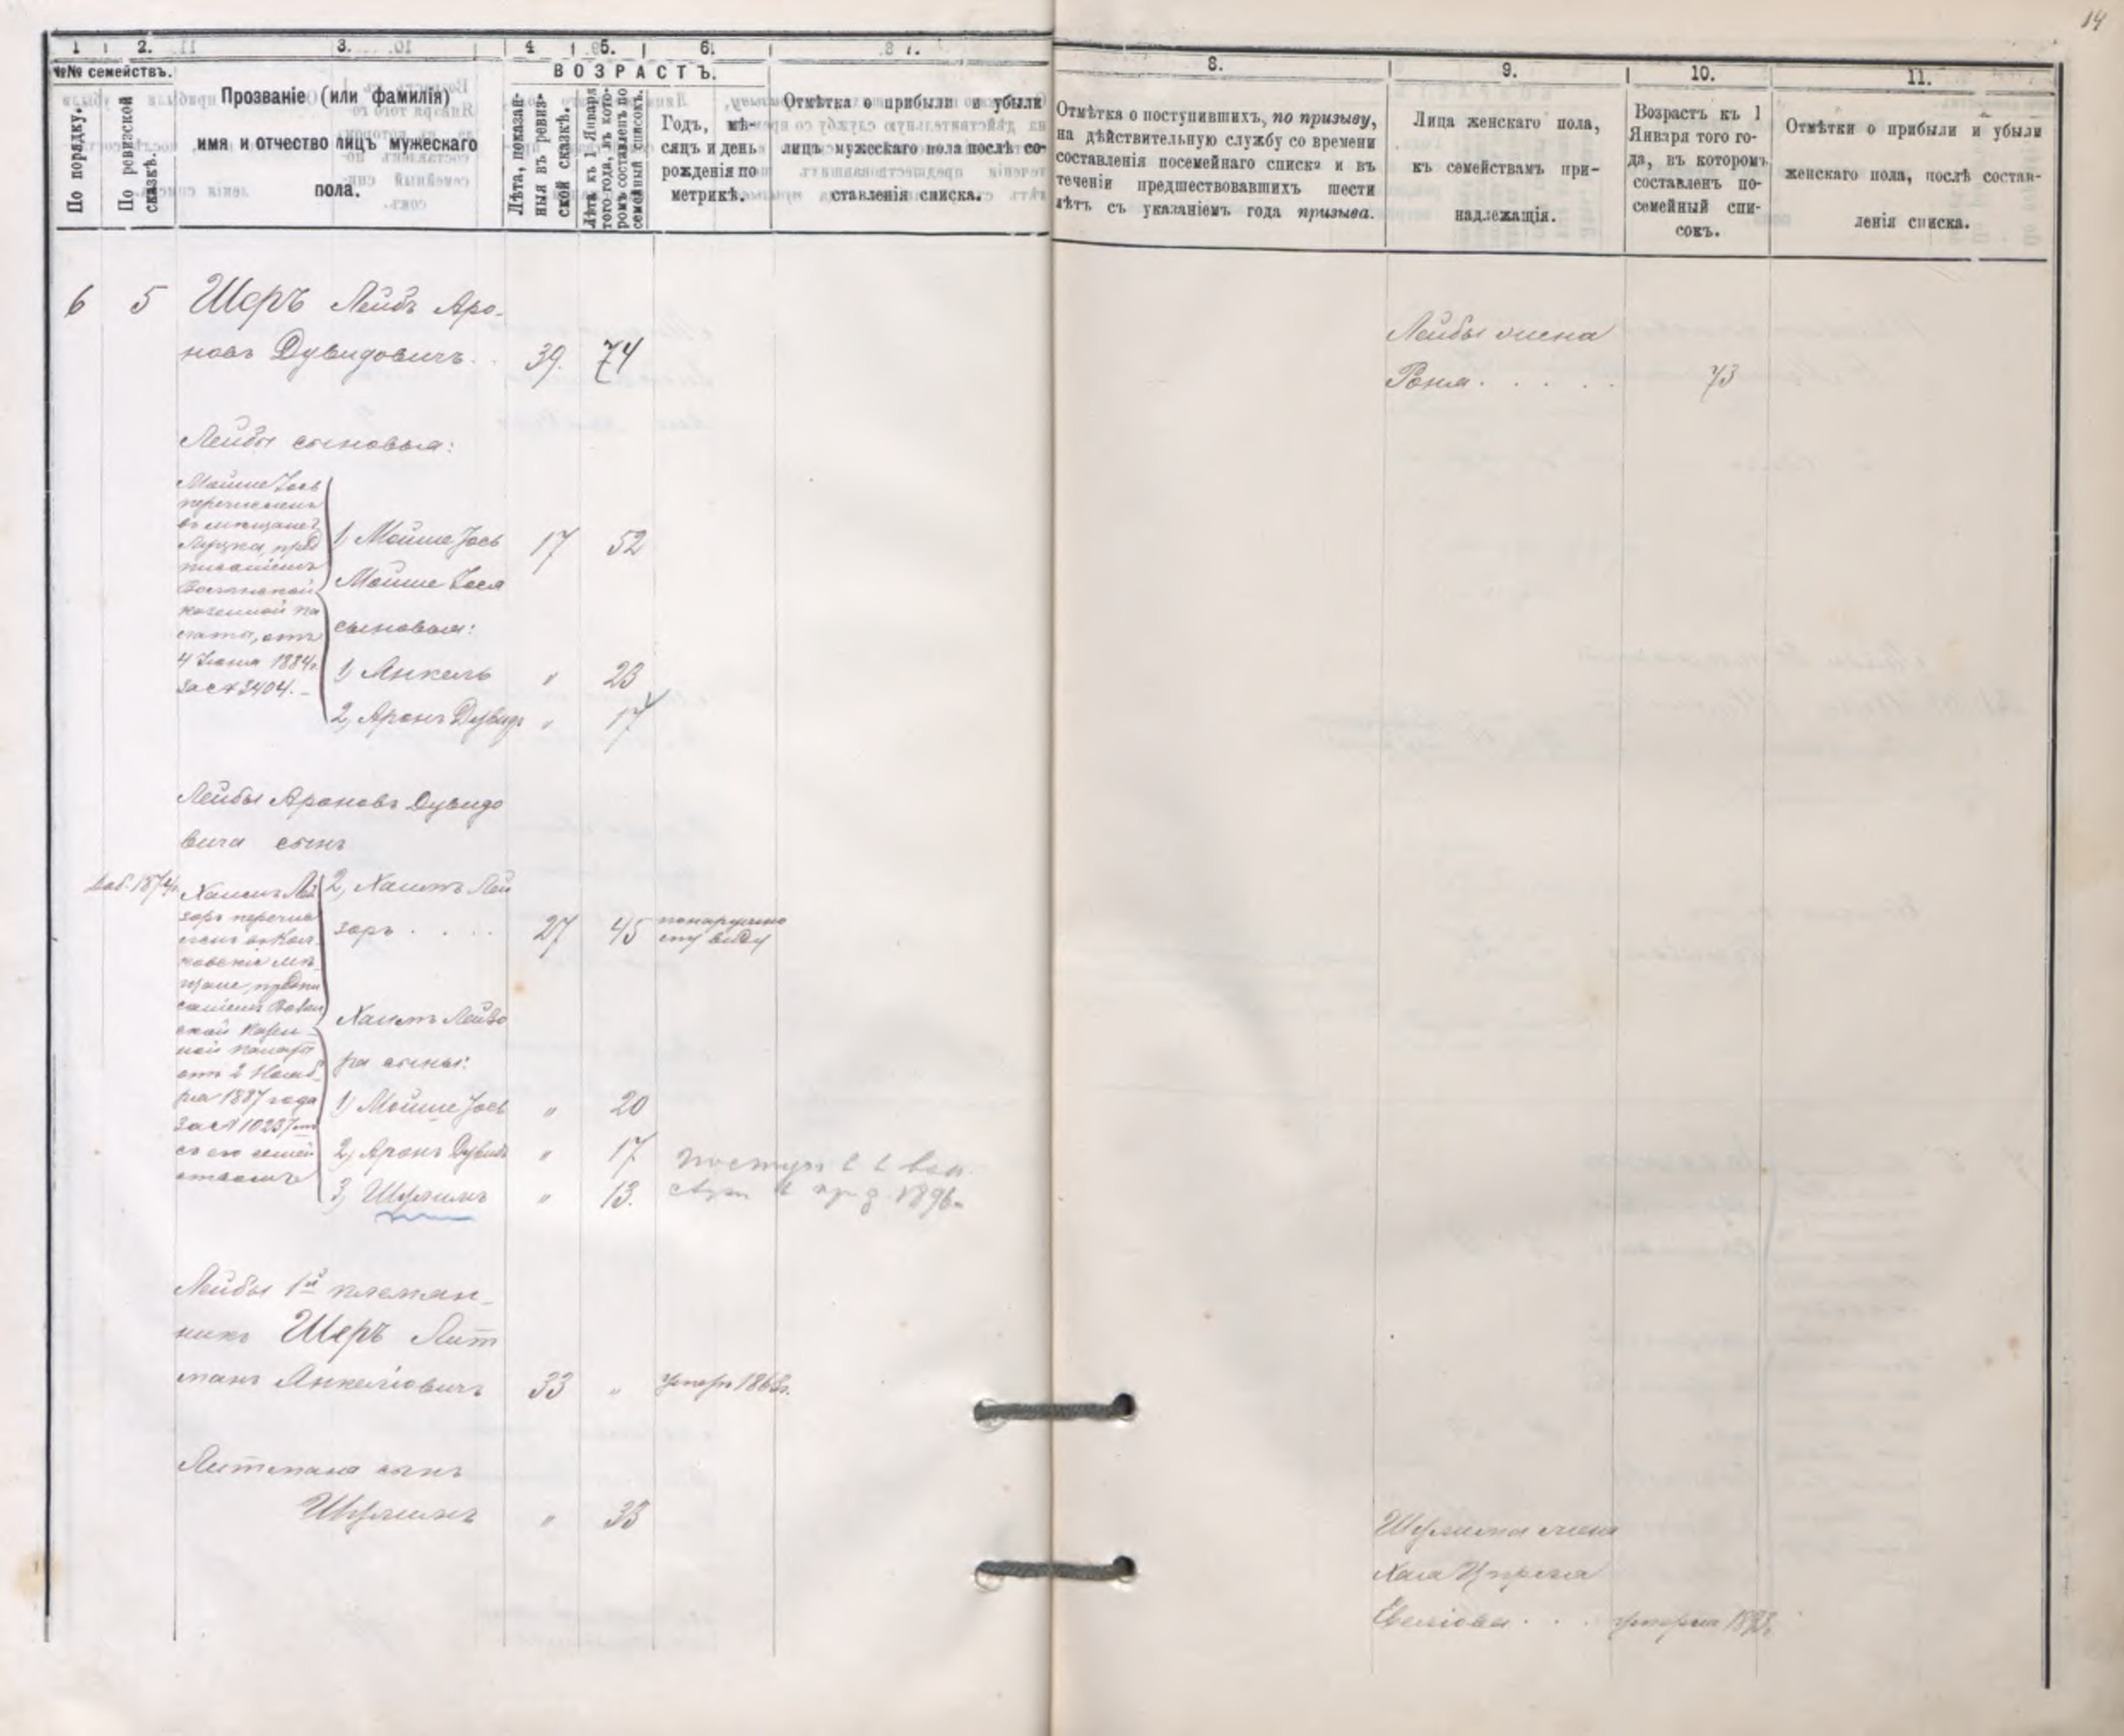 14
1 2. 3. 4 5. 6. 7.
№№ семействъ.
По порядку.
По ревизской сказкѣ.
Прозваніе (или фамилія)
имя и отчество лицъ мужескаго
пола.
ВОЗРАСТЪ.
Лѣта, показан-
ныя въ ревиз-
ской сказкѣ.
Лѣтъ къ 1 Января
того года, въ кото-
ромъ составленъ по
семейный списокъ.
Годъ, мѣ-
сяцъ и день
рожденія по
метрикѣ.
Отмѣтка о прибыли и убыли
лицъ мужескаго пола послѣ со-
ставленія списка.
8. 9. 10. 11.
Отмѣтка о поступившихъ, по призыву,
на дѣйствительную службу со времени
составленія посемейнаго списка и въ
теченіи предшествовавшихъ шести
лѣтъ съ указаніемъ года призыва.
Лица женскаго пола,
къ семействамъ при-
надлежащія.
Возрастъ къ 1
Января того го-
да, въ которомъ
составленъ по-
семейный спи-
сокъ.
Отмѣтки о прибыли и убыли
женскаго пола, послѣ состав-
ленія списка.
6 5 Шеръ Лейбъ Аро-
новъ Дувидовичъ . . 39. 74
Лейбы сыновья:
Мойше Іось
перечисленъ
въ мѣщане г.
Луцка, пред
писаніемъ
Волынской
казенной па
латы, отъ
4 Іюня 1884г.
за № 3404. –
1) Мойше Іось 17 52
Мойше Іося
сыновья:
1) Янкель " 23
2) Аронъ Дувидъ " 17
Лейбы Ароновъ Дувидо
вича сынъ
Хаимъ Лей
зоръ перечис
ленъ въ Кол
ковскіе мѣ
щане, предпи
саніемъ Волын
ской Казен-
ной палаты
отъ 2 Нояб-
ря 1887 года
за № 10237
съ его семей
ствомъ
2) Хаимъ Лей
зоръ . . . . 27 45 понаружно
му виду
Хаимъ Лейзо
ра сыны:
1) Мойше Іось " 20
2) Аронъ Дувидъ " 17
3) Шулимъ " 13.
1896г.
Лейбы 1й племян-
никъ Шеръ Лит
манъ Янкеліовичъ 33 " умеръ 1868г.
Литмана сынъ
Шулимъ " 33
Лейбы жена
Роня . . . . . 73
Шулима жена
Хая
Евеліова . . . умерла